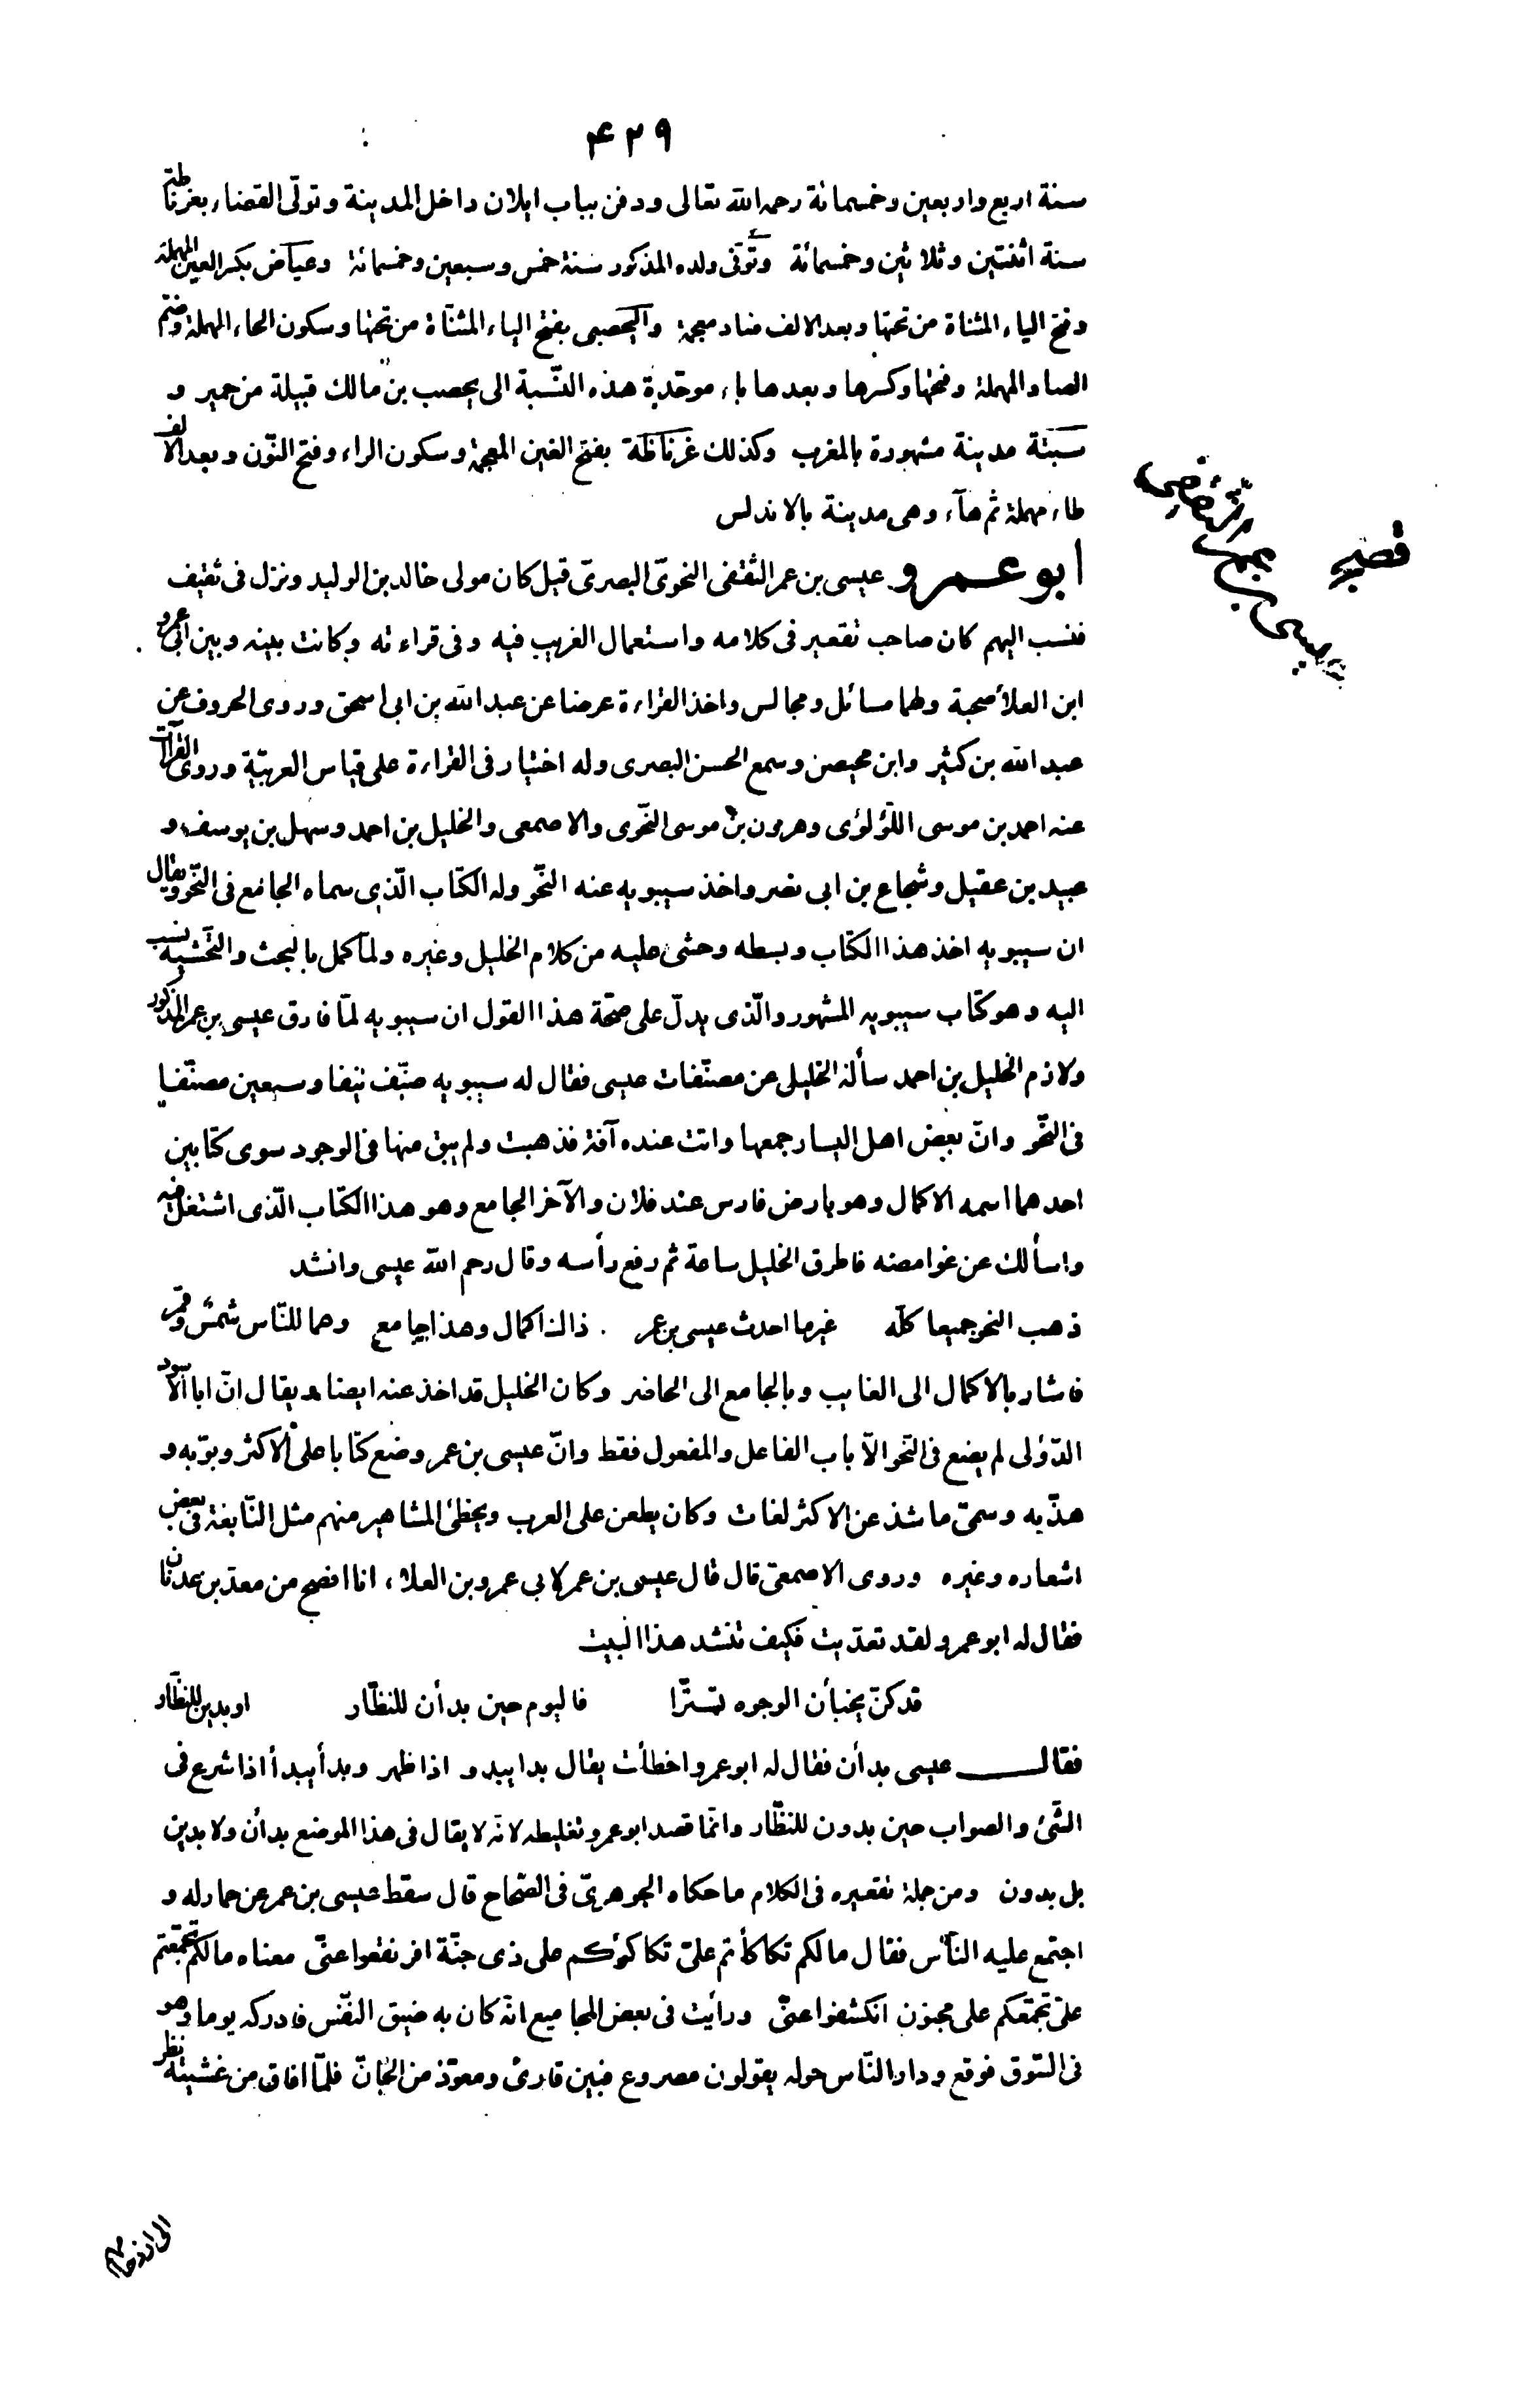 ۴۲۹
سنة اربع واربعين وخمسمائة رحمه الله تعالى ودفن بباب ايلان داخل المدينة وتولّى القضاء بغرناطة
سنة اثنتين وثلاثين وخمسمائة وتوفّى ولده المذكور سنة خمس وسبعين وخمسمائة وعياض بكسر العين المهملة
وفتح الياء المثناة من تحتها وبعد الالف ضاد معجمة واليحصبى بفتح الياء المثنّاة من تحتها وسكون الحاء المهملة وضمّ
الصاد المهملة وفتحها وكسرها وبعدها باء موحّدة هذه النّسبة الى يحصب بن مالك قبيلة من حمير و
سبتة مدينة مشهورة بالمغرب وكذلك غرناطة بفتح الغين المعجمة وسكون الراء وفتح النّون وبعد الالف
طاء مهملة ثم هاء وهى مدينة بالاندلس
ابو عمرو عيسى بن عمر الثقفى النحوىّ البصرىّ قيل كان مولى خالد بن الوليد ونزل فى ثقيف
فنسب اليهم كان صاحب تقعير فى كلامه واستعمال الغريب فيه وفى قراءته وكانت بينه وبين ابى عمرو
ابن العلاء صحبة ولهما مسائل ومجالس واخذ القراءة عرضا عن عبد الله بن ابى اسحق وروى الحروف عن
عبد الله بن كثير وابن محيصن وسمع الحسن البصرى وله اختيار فى القراءة على قياس العربيّة وروى القراآت
عنه احمد بن موسى اللّؤلؤى وهرون بن موسى النّحوى والاصمعى والخليل بن احمد وسهل بن يوسف و
عبيد بن عقيل وشجاع بن ابى نصر واخذ سيبويه عنه النّحو وله الكتاب الّذى سماه الجامع فى النّحو ويقال
ان سيبويه اخذ هذا الكتاب وبسطه وحشى عليه من كلام الخليل وغيره ولمّا كمل بالبحث والتّحشية نسب
اليه وهو كتاب سيبويه المشهور والّذى يدلّ على صحّة هذا القول ان سيبويه لمّا فارق عيسى بن عمر المذكور
ولازم الخليل بن احمد سأله الخليل عن مصنّفات عيسى فقال له سيبويه صنّف نيّفا وسبعين مصنّفا
فى النّحو وانّ بعض اهل اليسار جمعها واتت عنده آفة فذهبت ولم يبق منها فى الوجود سوى كتابين
احدهما اسمه الاكمال وهو بارض فارس عند فلان والآخر الجامع وهو هذا الكتاب الّذى اشتغل فيه
واسألك عن غوامضه فاطرق الخليل ساعة ثم رفع رأسه وقال رحم الله عيسى وانشد
ذهب النحو جميعا كلّه غير ما احدث عيسى بن عمر ذاك اكمال وهذا جامع وهما للنّاس شمس وقمر
فاشار بالاكمال الى الغايب وبالجامع الى الحاضر وكان الخليل قد اخذ عنه ايضا ويقال انّ ابا الاسود
الدّؤلى لم يضع فى النّحو الّا باب الفاعل والمفعول فقط وانّ عيسى بن عمر وضع كتابا على الاكثر وبوّبه و
هذّبه وسمىّ ما شذ عن الاكثر لغات وكان يطعن على العرب ويخطئ المشاهير منهم مثل النّابغة فى بعض
اشعاره وغيره وروى الاصمعىّ قال قال عيسى بن عمر لابى عمرو بن العلاء انا افصح من معدّ بن عدنان
فقال له ابو عمرو لقد تعدّيت فكيف تنشد هذا البيت
قد كنّ يخبأن الوجوه تستّرا فاليوم حين بدأن للنظّار او بدين للنظّار
فقال عيسى بدأن فقال له ابو عمرو اخطأت يقال بدا يبدو اذا ظهر وبدأ يبدأ اذا شرع فى
الشّئ والصواب حين بدون للنظّار وانّما قصد ابو عمرو تغليطه لانّه لا يقال فى هذا الموضع بدأن ولا بدين
بل بدون ومن جملة تقعيره فى الكلام ما حكاه الجوهرىّ فى الصّحاح قال سقط عيسى بن عمر عن حمار له و
اجتمع عليه النّاس فقال ما لكم تكأكأتم علىّ تكأكؤكم على ذى جنّة افرنقعوا عنّى معناه ما لكم تجمّعتم
علىّ تجمّعكم على مجنون انكشفوا عنّى ورأيت فى بعض المجاميع انّه كان به ضيق النّفس فادركه يوما وهو
فى السّوق فوقع ودار النّاس حوله يقولون مصروع فبين قارئ ومعوّذ من الجانّ فلمّا افاق من غشيته نظر
الى ازدحام